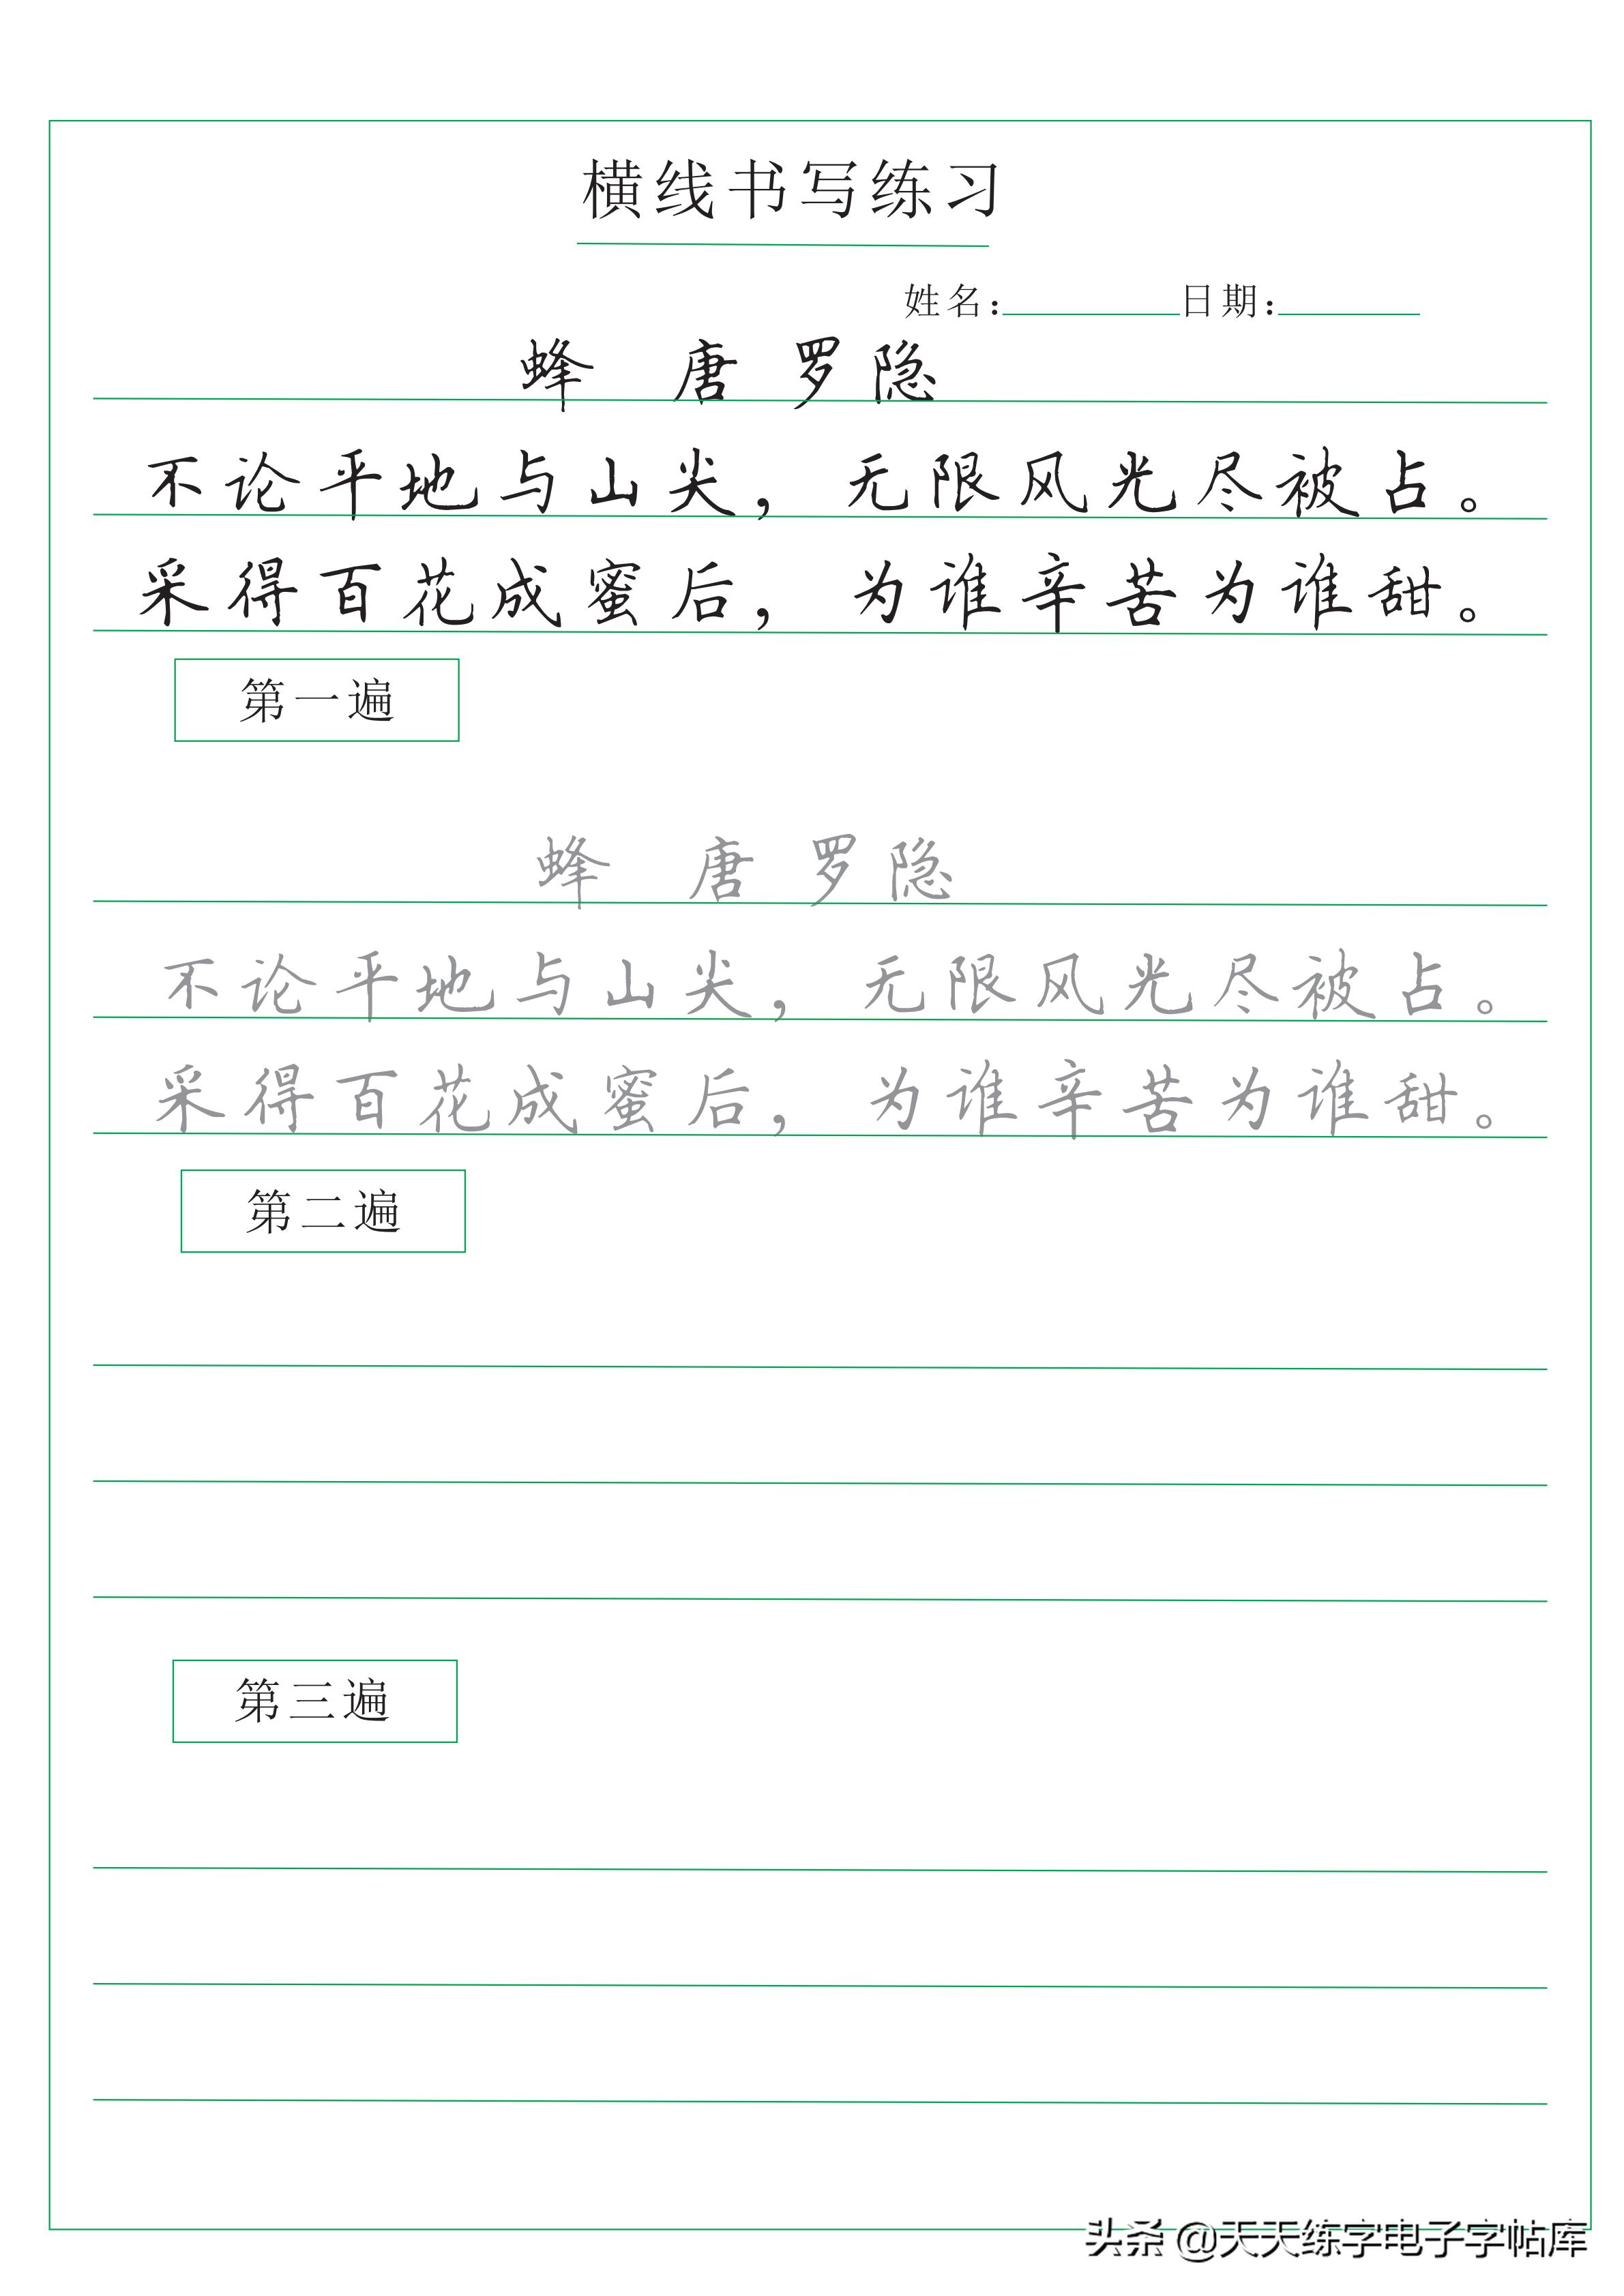 横线书写练习
姓名：日期：
蜂 唐 罗隐
不论平地与山尖，无限风光尽被占。
采得百花成蜜后，为谁辛苦为谁甜。
第一遍
蜂 唐 罗隐
不论平地与山尖，无限风光尽被占。
采得百花成蜜后，为谁辛苦为谁甜。
第二遍
第三遍
头条 @天天练字电子字帖库